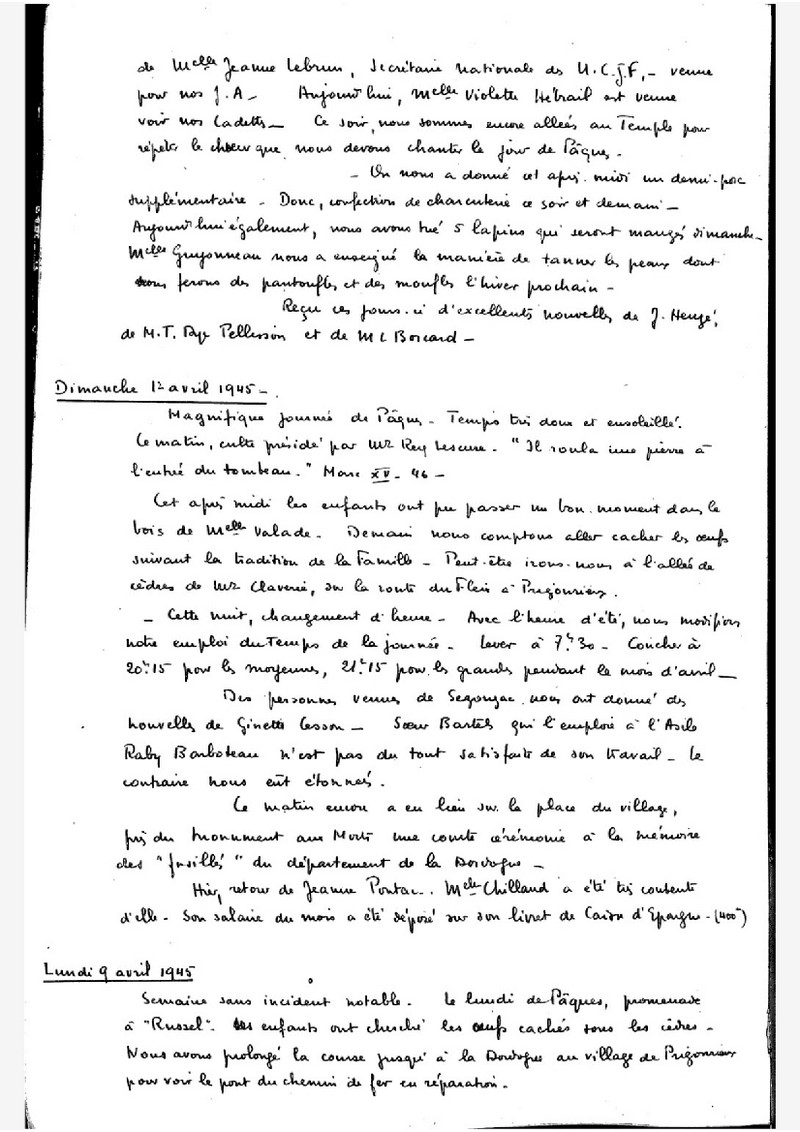 de Melle Jeanne Lebrun, Secrétaire Nationale des U.C.J.F, - venue
pour nos J.A - Aujourd'hui, Melle Violette Hébrail est venue
voir nos Cadettes - Ce soir, nous sommes encore allées au Temple pour
répéter le chœur que nous devons chanter le jour de Pâques.
- On nous a donné cet après-midi un demi-porc
supplémentaire - Donc, confection de charcuterie ce soir et demain -
Aujourd'hui également, nous avons tué 5 lapins qui seront mangés dimanche -
Melle Guyonneau nous a enseigné la manière de tanner les peaux dont
nous ferons des pantoufles et des moufles l'hiver prochain -
Reçu ces jours-ci d'excellentes nouvelles de J. Hengé,
de M.T. Pellisson et de M L Boscard -
Dimanche 1er avril 1945 -
Magnifique journée de Pâques - Temps très doux et ensoleillé.
Ce matin, culte présidé par Mr Rey Lescure - "Il roula une pierre à
l'entrée du tombeau." Marc XV - 46 -
Cet après midi les enfants ont pu passer un bon moment dans le
bois de Melle Valade - Demain nous comptons aller cacher les œufs
suivant la tradition de la Famille - Peut-être irons-nous à l'allée de
cèdres de Mr Claverie, sur la route du Fleix à Prigonrieux.
- Cette nuit, changement d'heure - Avec l'heure d'été, nous modifions
notre emploi du Temps de la journée - Lever à 7h30 - Coucher à
20h15 pour les moyennes, 21h15 pour les grandes pendant le mois d'avril -
Des personnes venues de Segonzac nous ont donné des
nouvelles de Ginette Cesson - Sœur Bartels qui l'emploie à l'Asile
Raby Barboteau n'est pas du tout satisfaite de son travail - Le
contraire nous eût étonnés.
Ce matin encore a eu lieu sur la place du village,
près du Monument aux Morts une courte cérémonie à la mémoire
des "fusillés" du département de la Dordogne -
Hier, retour de Jeanne Pontac. Melle Chilland a été très contente
d'elle - Son salaire du mois a été déposé sur son livret de Caisse d'Epargne - (400f)
Lundi 9 avril 1945
Semaine sans incident notable. Le lundi de Pâques, promenade
à "Russel". Les enfants ont cherché les œufs cachés sous les cèdres -
Nous avons prolongé la course jusqu'à la Dordogne au village de Prigonrieux
pour voir le pont du chemin de fer en réparation.